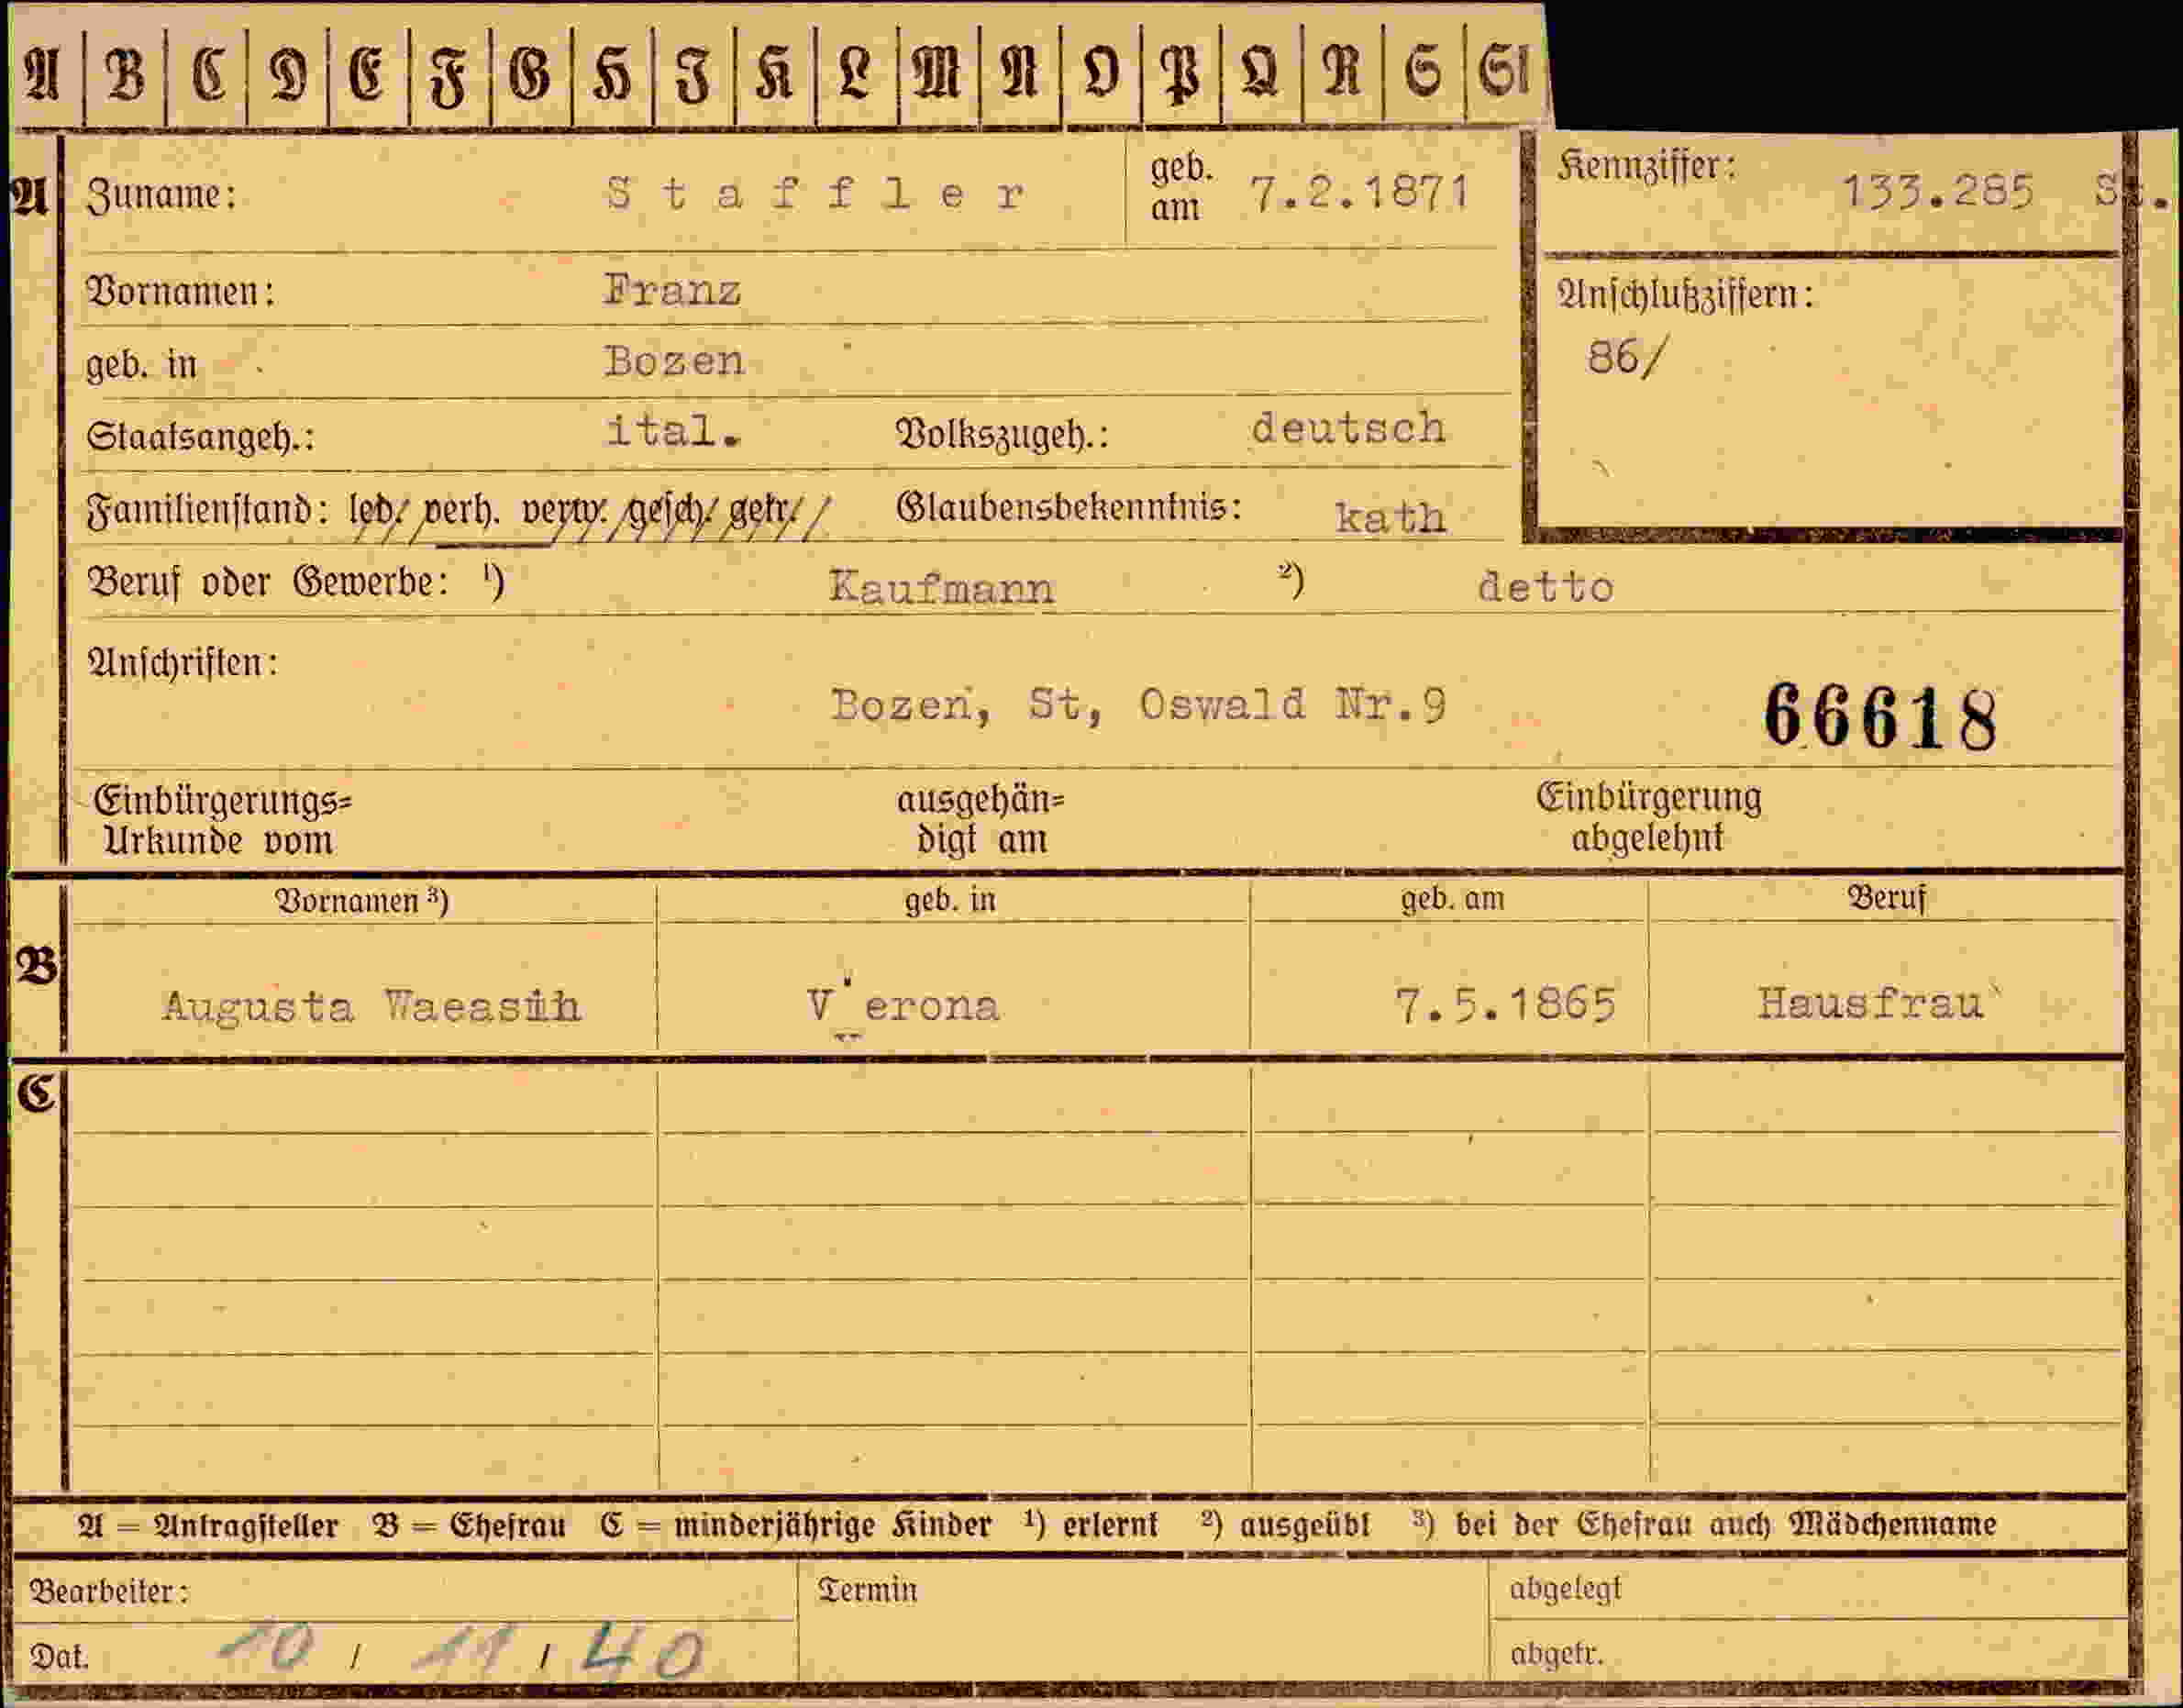 A B C D E F G H I K L M N O P Q R S St
A Zuname: Staffler geb. am 7.2.1871 Kennziffer: 133.285 St.
Vornamen: Franz Anschlußziffern:
geb. in Bozen 86/
Staatsangeh.: ital. Volkszugeh.: deutsch
Familienstand: led. verh. verw. gesch. getr. Glaubensbekenntnis: kath
Beruf oder Gewerbe: ¹) Kaufmann ²) detto
Anschriften:
Bozen, St, Oswald Nr.9 66618
Einbürgerungs= ausgehän= Einbürgerung
Urkunde vom digt am abgelehnt
Vornamen ³) geb. in geb. am Beruf
B
Augusta Verona 7.5.1865 Hausfrau
C
A = Antragsteller B = Ehefrau C = minderjährige Kinder ¹) erlernt ²) ausgeübt ³) bei der Ehefrau auch Mädchenname
Bearbeiter: Termin abgelegt
Dat. 10 / 11 / 40 abgetr.